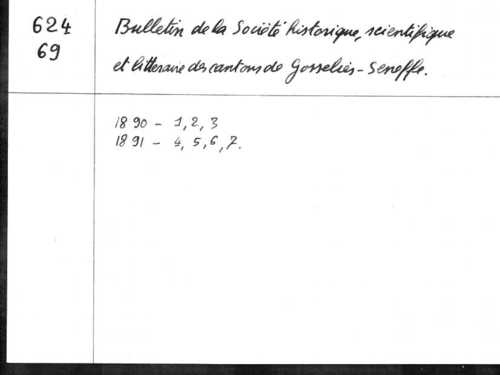 624
69
Bulletin de la Société historique, scientifique
et litteraire des cantons de Gosselies-Seneffe.
1890 - 1, 2, 3
1891 - 4, 5, 6, 7.